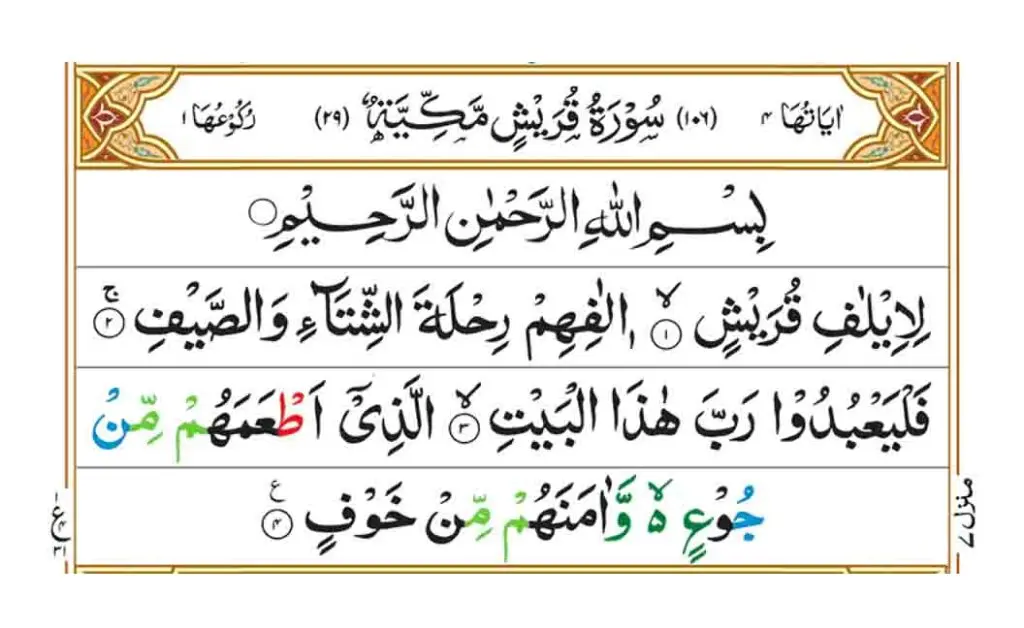 اٰيَاتُهَا ٤ (١٠٦) سُوْرَةُ قُرَيْشٍ مَّكِّيَّةٌ (٢٩) رُكُوْعُهَا ١
بِسْمِ اللّٰهِ الرَّحْمٰنِ الرَّحِيْمِ
لِاِيْلٰفِ قُرَيْشٍ ۙ ١ اٖلٰفِهِمْ رِحْلَةَ الشِّتَآءِ وَالصَّيْفِ ۚ ٢
فَلْيَعْبُدُوْا رَبَّ هٰذَا الْبَيْتِ ۙ ٣ الَّذِيْۤ اَطْعَمَهُمْ مِّنْ
جُوْعٍ ۙ٥ وَّاٰمَنَهُمْ مِّنْ خَوْفٍ ٤ ع
منزل ٧
ع ٤